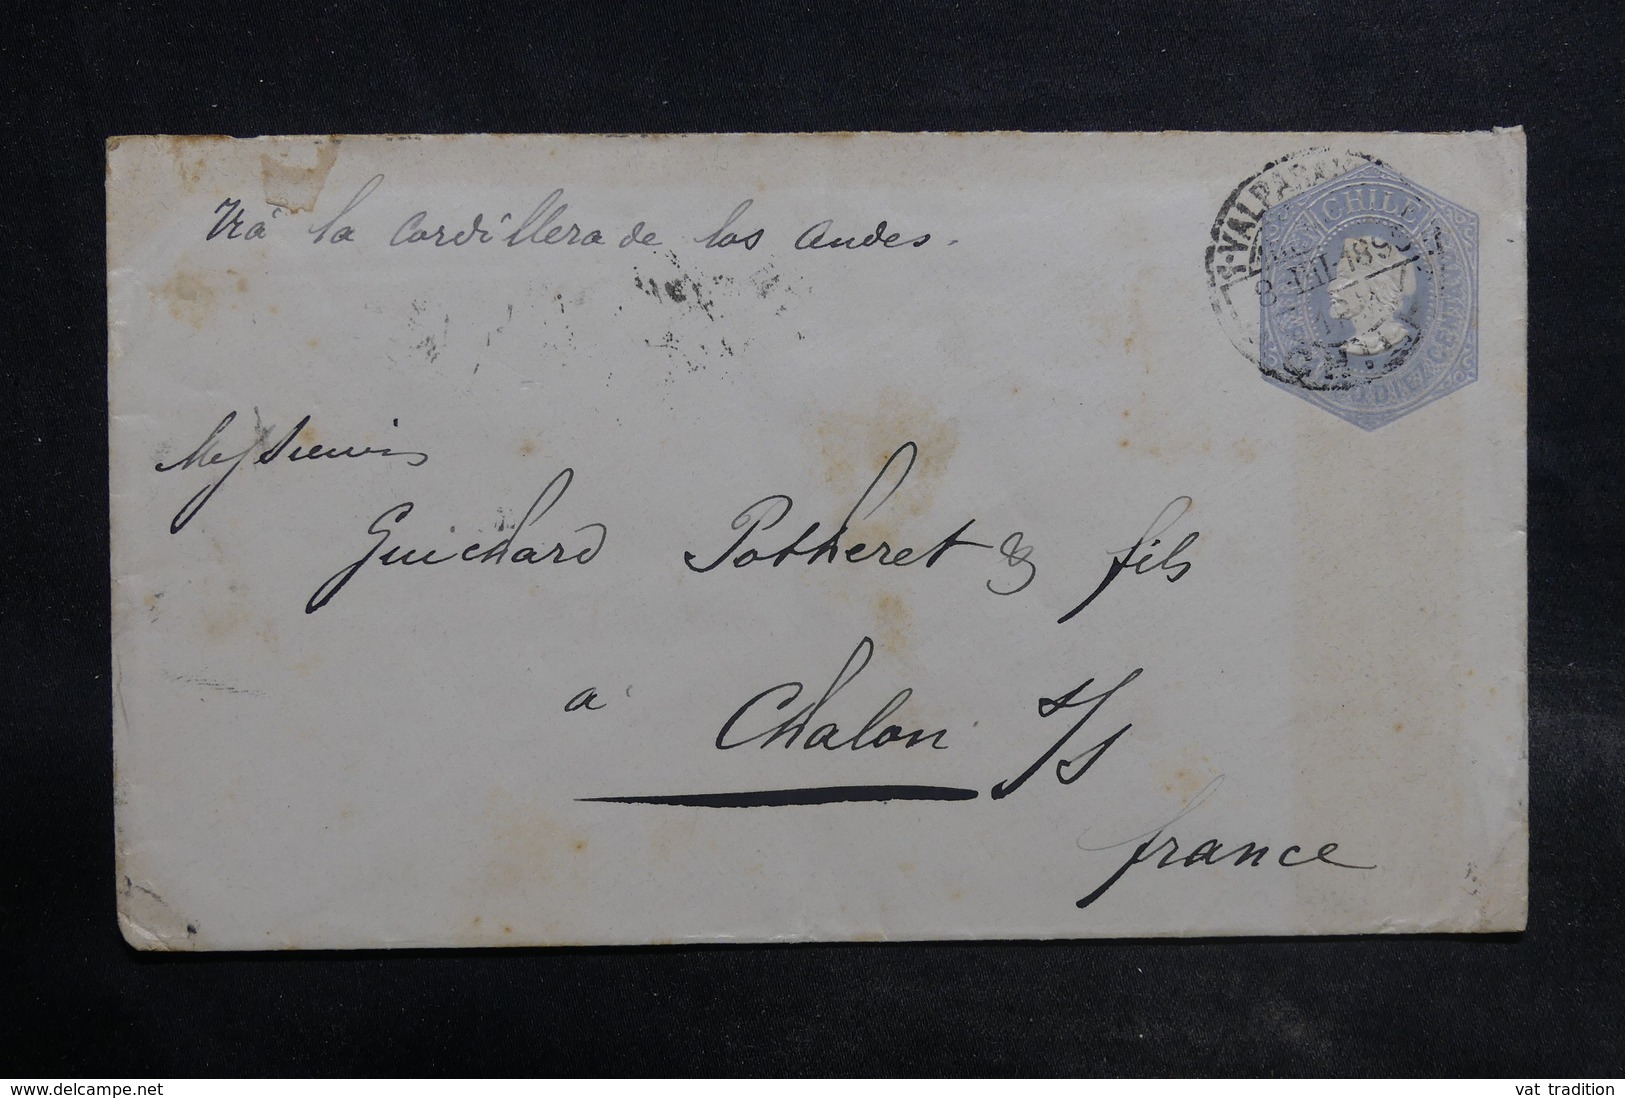 Via la Cordillera de los Andes.
VALPARAISO
CHILE
8
III-189
CHILE
DIEZ CENTAVOS
Messieurs
Guichard Potheret & fils
à Chalon s/s
france
delcampe.net
vat tradition